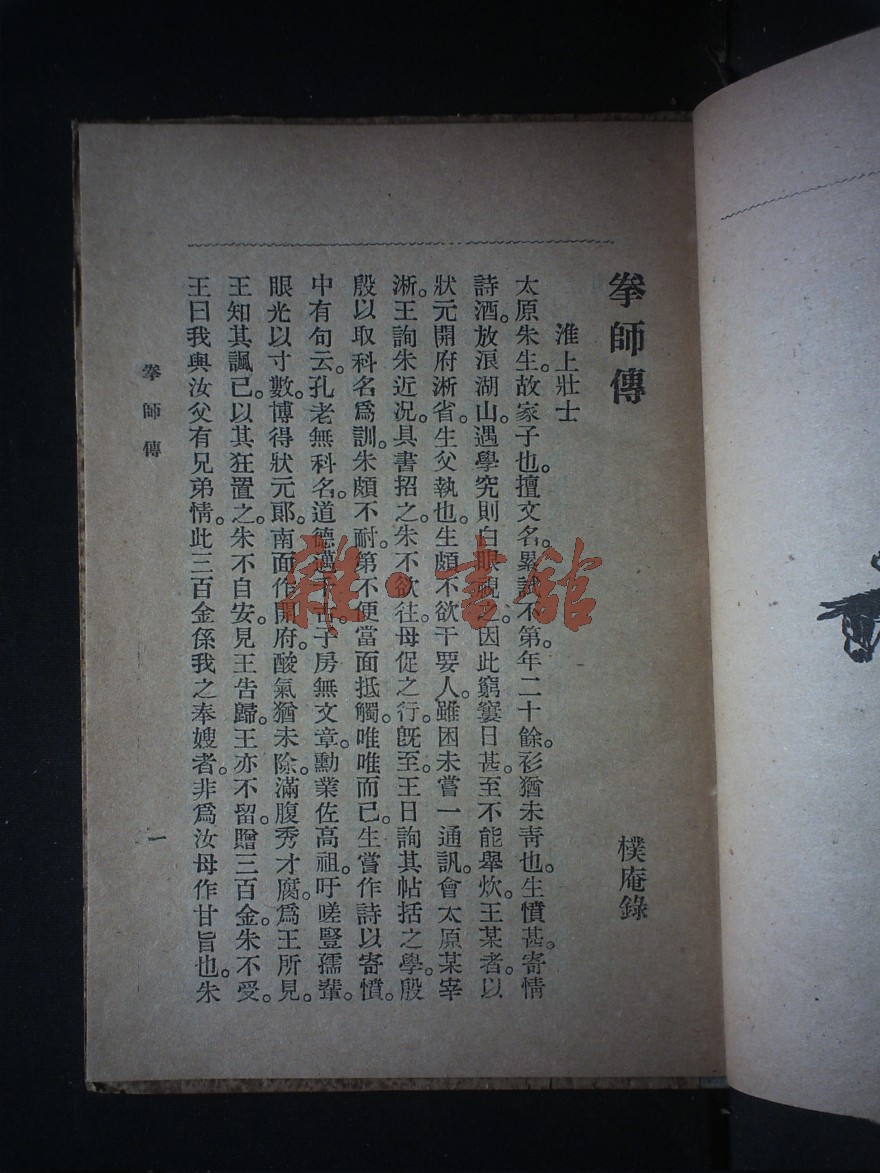 拳師傳
樸庵錄
淮上壯士
太原朱生。故家子也。擅文名。累試不第。年二十餘。衫猶未靑也。生憤甚。寄情
詩酒。放浪湖山。遇學究則白眼視之。因此窮窶日甚。至不能舉炊。王某者。以
狀元開府淅省。生父執也。生頗不欲干要人。雖困未嘗一通訊。會太原某宰
淅。王詢朱近况。具書招之。朱不欲往。母促之行。旣至。王日詢其帖括之學。殷
殷以取科名爲訓。朱頗不耐。第不便當面抵觸。唯唯而已。生嘗作詩以寄憤。
中有句云。孔老無科名。道德邁千古。子房無文章。勳業佐高祖。吁嗟豎孺輩。
眼光以寸數。博得狀元郞。南面作開府。酸氣猶未除。滿腹秀才腐。爲王所見。
王知其諷己。以其狂置之。朱不自安。見王告歸。王亦不留。贈三百金。朱不受。
王曰我與汝父有兄弟情。此三百金係我之奉嫂者。非爲汝母作甘旨也。朱
拳師傳
一
雜·書館